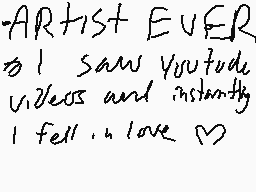 -ARTIST EVER
I saw youtude
videos and instantly
I fell in love ♡